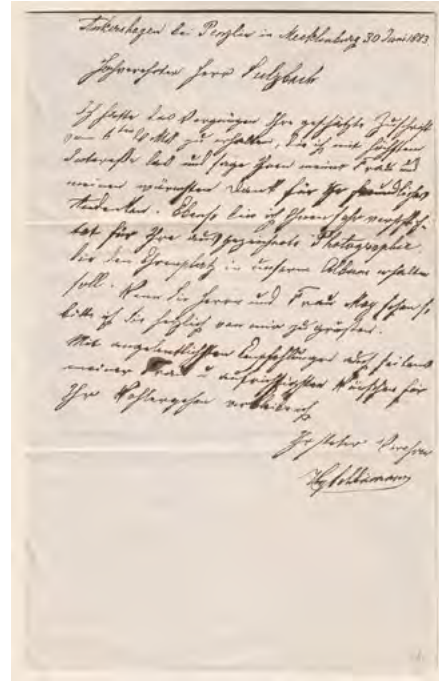 Ankershagen bei Penzlin in Mecklenburg 30 Juni 1883
Hochverehrter Herr Sulzbach
Ich hatte das Vergnügen Ihre geschätzte Zuschrift
vom zu erhalten, die ich mit höchstem
Interesse las und sage Ihnen meiner Frau und
meinen wärmsten Dank für Ihr freundliches
Andenken. Ebenso bin ich Ihnen sehr verpflich-
tet für Ihre ausgezeichnete Photographie,
die den Ehrenplatz in unserm Album erhalten
soll. Wenn Sie Herrn und Frau May sehen so
bitte ich Sie herzlich von mir zu grüssen.
Mit angelentlichsten Empfehlungen auch seitens
meiner Frau u aufrichtigsten Wünschen für
Ihr Wohlergehen verbleibe ich
Ihr steter Verehrer
Hy Schliemann